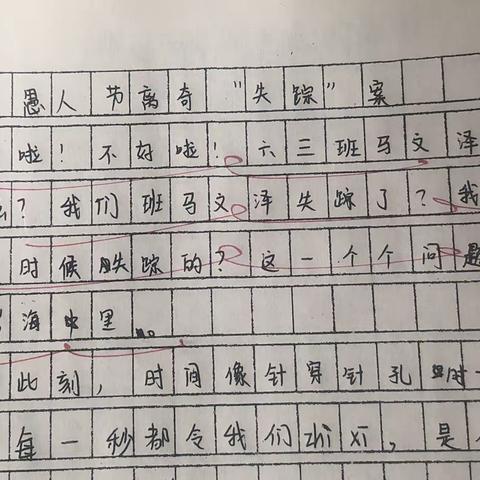 愚人节离奇“失踪”案
啦！不好啦！六三班马文泽
？我们班马文泽失踪了？我
时候失踪的？这一个个问题
海里。
此刻，时间像针穿针孔时
每一秒都令我们zhi xi，是